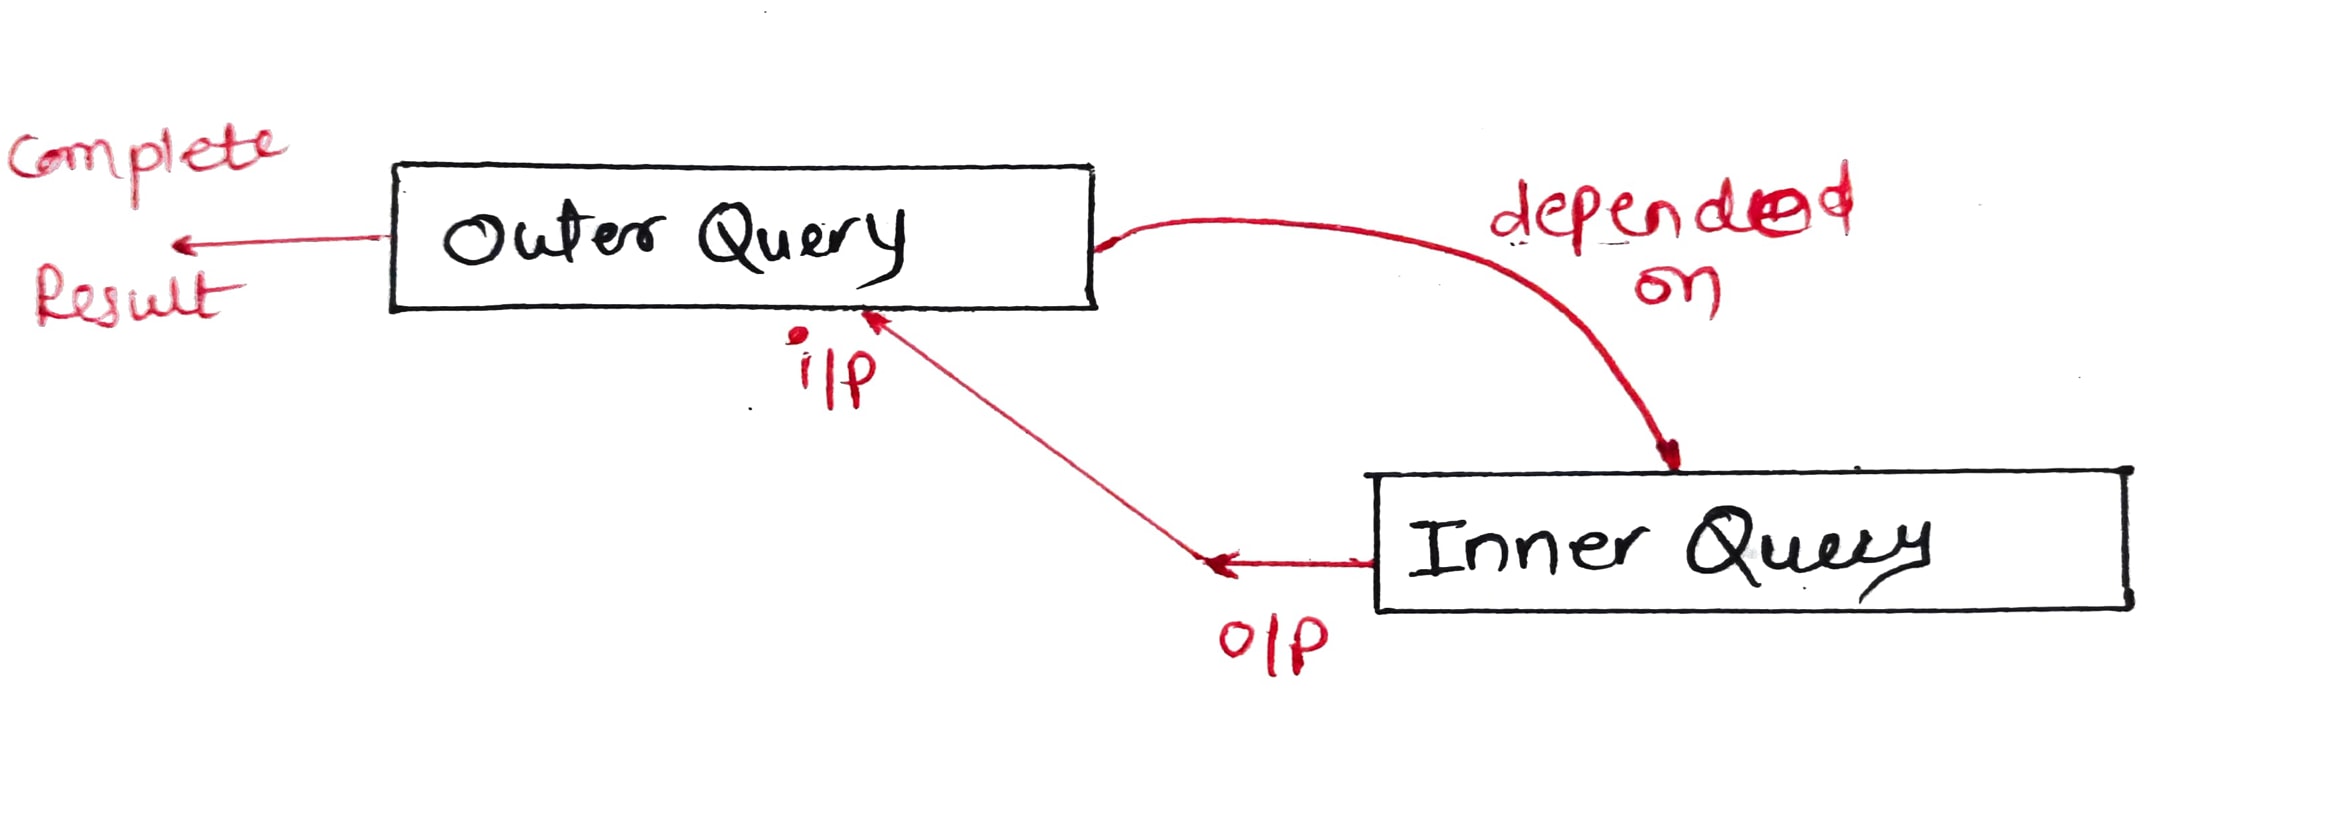 Complete
Result
Outer Query
depended
on
i/p
Inner Query
o/p